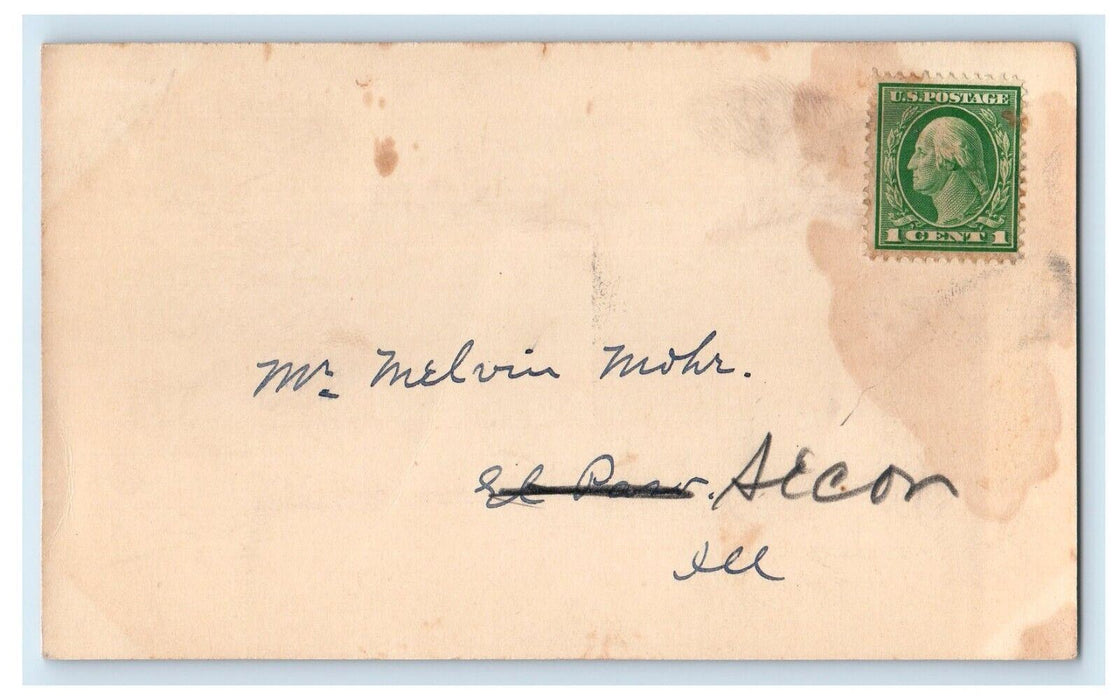 U.S. POSTAGE
1 CENT 1
Mr. Melvin Mohr.
El Paso. Secor
Ill